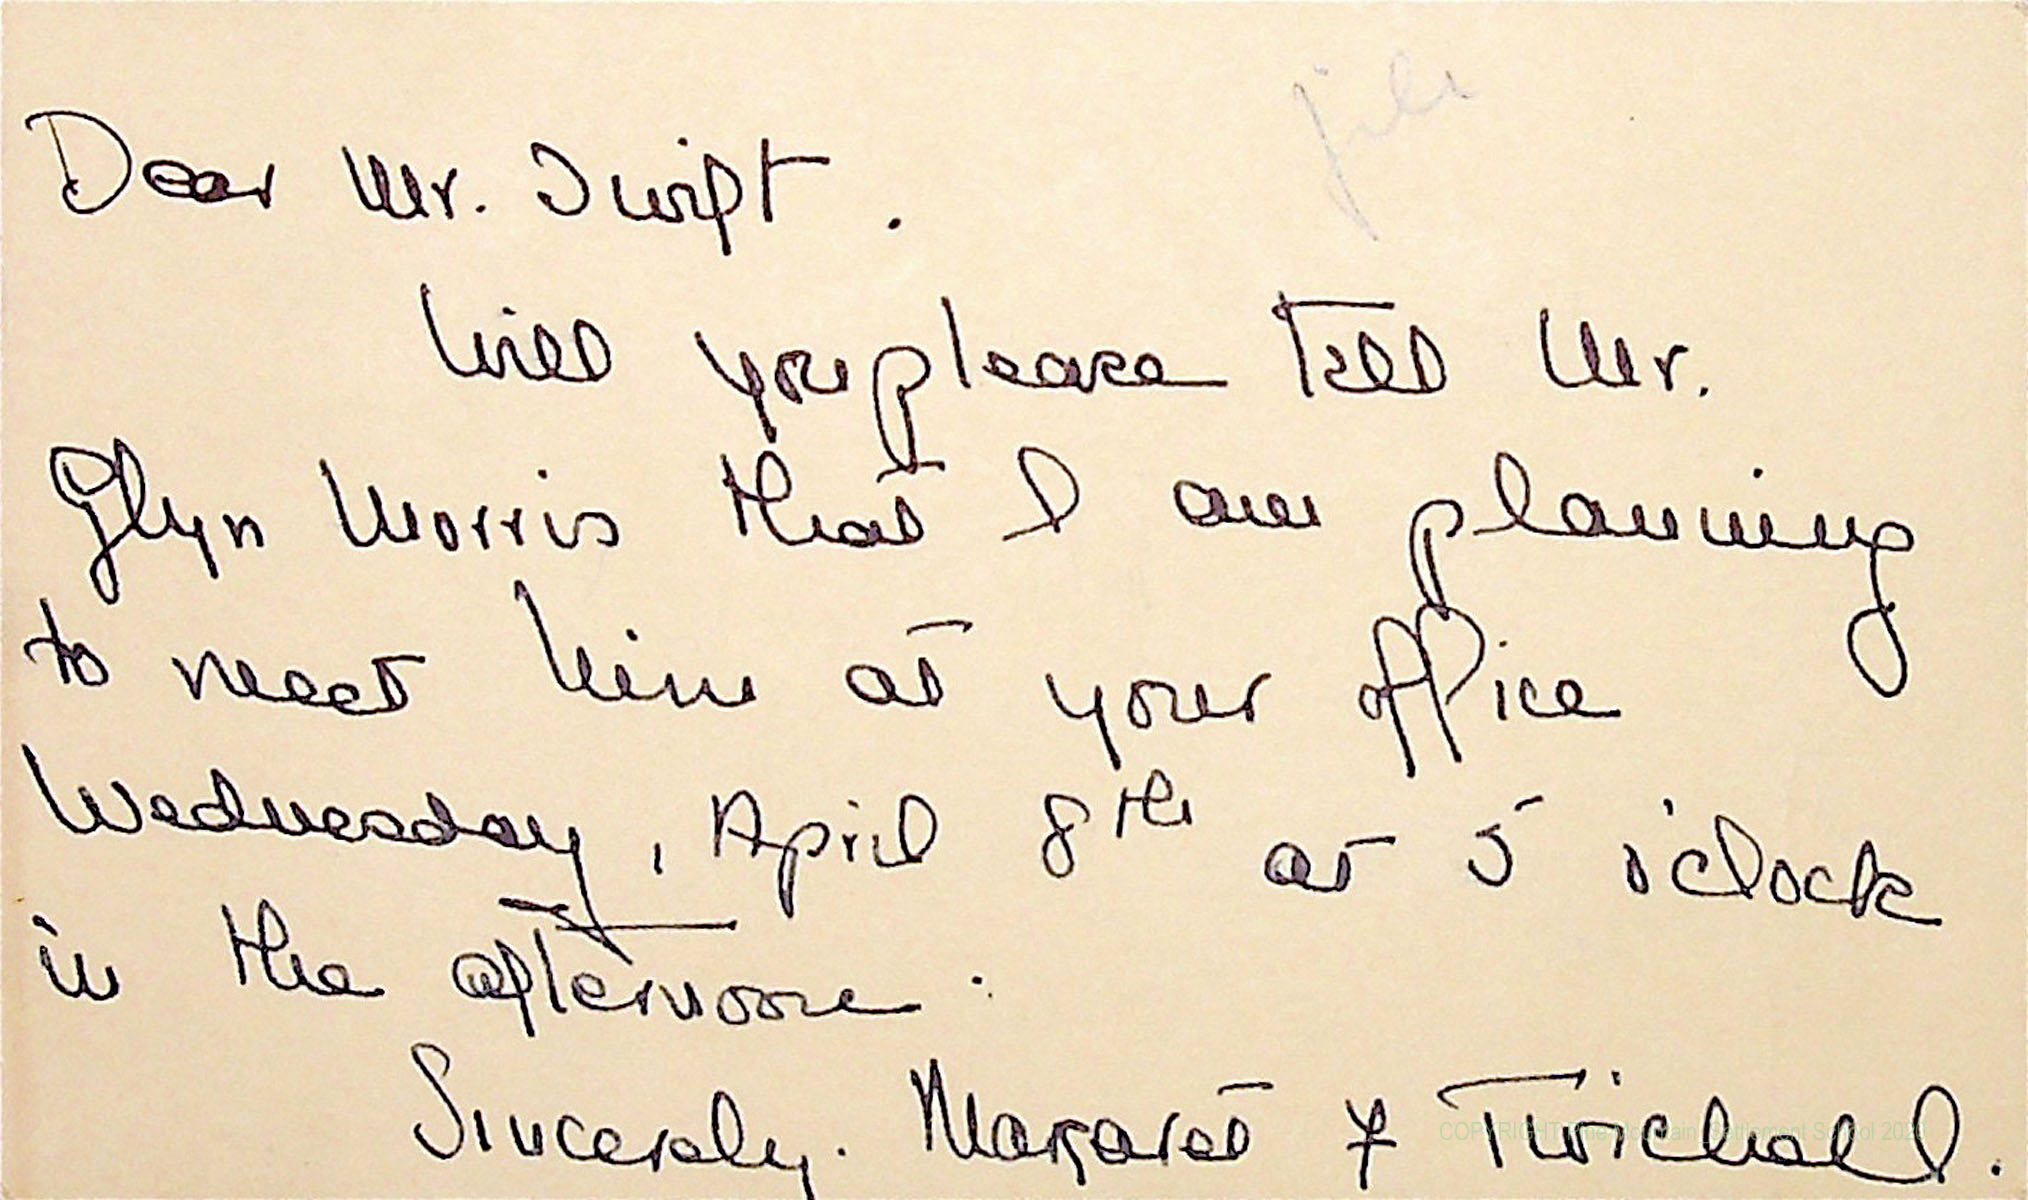 file
Dear Mr. Swift.
Will you please tell Mr.
Glyn Morris that I am planning
to meet him at your office
Wednesday, April 8th at 5 o'clock
in the afternoon.
Sincerely. Margaret F Twichell.
COPYRIGHT Pine Mountain Settlement School 202